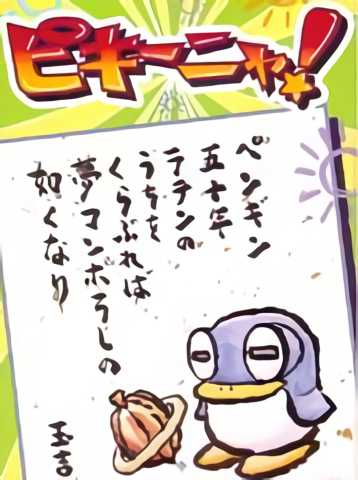 ピキーニャ!
ペンギン
五十年
ラテンの
うちを
くらぶれば
夢マンボうしの
如くなり
玉吉